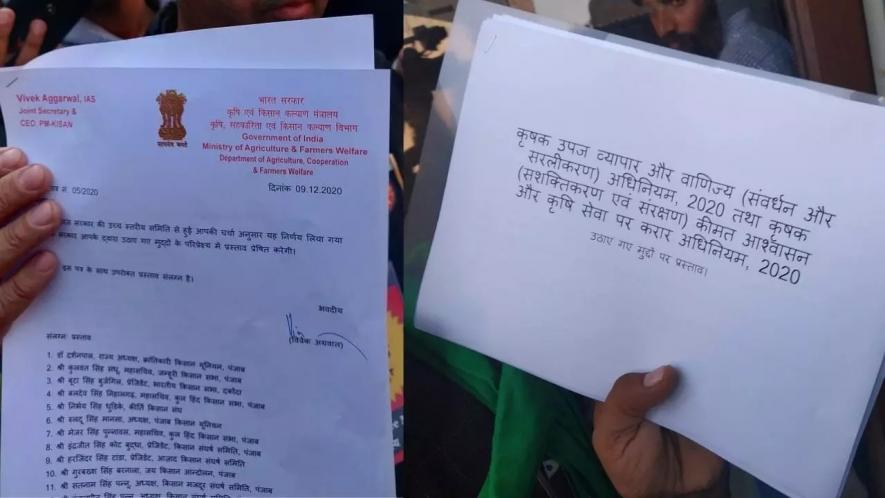 Vivek Aggarwal, IAS
Joint Secretary &
CEO, PM-KISAN
सत्यमेव जयते
भारत सरकार
कृषि एवं किसान कल्याण मंत्रालय
कृषि, सहकारिता एवं किसान कल्याण विभाग
Government of India
Ministry of Agriculture & Farmers Welfare
Department of Agriculture, Cooperation
& Farmers Welfare
सं. 05/2020
दिनांक 09.12.2020
सरकार की उच्च स्तरीय समिति से हुई आपकी चर्चा अनुसार यह निर्णय लिया गया
सरकार आपके द्वारा उठाए गए मुद्दों के परिप्रेक्ष्य में प्रस्ताव प्रेषित करेगी।
इस पत्र के साथ उपरोक्त प्रस्ताव संलग्न है।
भवदीय
(विवेक अग्रवाल)
संलग्न: प्रस्ताव
1. डॉ दर्शनपाल, राज्य अध्यक्ष, क्रांतिकारी किसान यूनियन, पंजाब
2. श्री कुलवंत सिंह संधू, महासचिव, जम्हूरी किसान सभा, पंजाब
3. श्री बूटा सिंह बुर्जगिल, प्रेजिडेंट, भारतीय किसान सभा, दकोंदा
4. श्री बलदेव सिंह निहालगढ़, महासचिव, कुल हिंद किसान सभा, पंजाब
5. श्री निर्भय सिंह धुडिके, कीर्ति किसान संघ
6. श्री रुलदू सिंह मानसा, अध्यक्ष, पंजाब किसान यूनियन
7. श्री मेजर सिंह पुन्नावल, महासचिव, कुल हिंद किसान सभा, पंजाब
8. श्री इंद्रजीत सिंह कोट बुद्धा, प्रेजिडेंट, किसान संघर्ष समिति, पंजाब
9. श्री हरजिंदर सिंह टांडा, प्रेजिडेंट, आज़ाद किसान संघर्ष समिति
10. श्री गुरबख्श सिंह बरनाला, जय किसान आन्दोलन, पंजाब
11. श्री सतनाम सिंह पन्नू, अध्यक्ष, किसान मजदूर संघर्ष समिति, पंजाब
कृषक उपज व्यापार और वाणिज्य (संवर्धन और
सरलीकरण) अधिनियम, 2020 तथा कृषक
(सशक्तिकरण एवं संरक्षण) कीमत आश्वासन
और कृषि सेवा पर करार अधिनियम, 2020
उठाए गए मुद्दों पर प्रस्ताव।